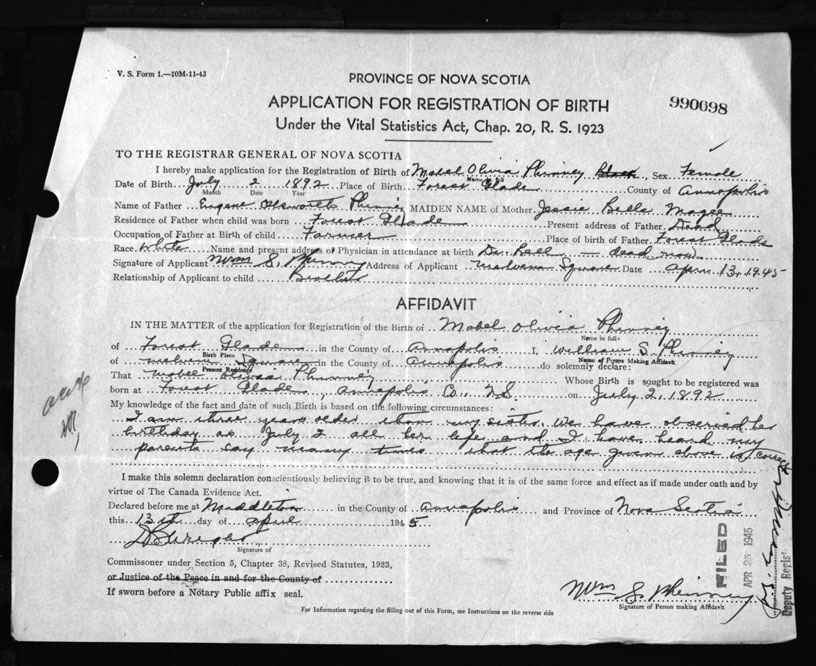 V. S. Form 1.—10M-11-43
PROVINCE OF NOVA SCOTIA
990098
APPLICATION FOR REGISTRATION OF BIRTH
Under the Vital Statistics Act, Chap. 20, R. S. 1923
TO THE REGISTRAR GENERAL OF NOVA SCOTIA
I hereby make application for the Registration of Birth of Mabel Olivia Phinney Sex Female
Date of Birth July 2 1892 Place of Birth Forest Glade County of Annapolis
Month Date Year
Name of Father Phinney MAIDEN NAME of Mother Jessie Belle Magee
Residence of Father when child was born Forest Glade Present address of Father Dead
Occupation of Father at Birth of child Farmer Place of birth of Father Forest Glade
Race White Name and present address of Physician in attendance at birth Dr. — dead now
Signature of Applicant Wm S. Phinney Address of Applicant Melvern Square Date April 13, 1945
Relationship of Applicant to child Brother
AFFIDAVIT
IN THE MATTER of the application for Registration of the Birth of Mabel Olivia Phinney
Name in full
of Forest Glade in the County of Annapolis I, William S. Phinney
Birth Place Name of Person Making Affidavit
of Melvern Square in the County of Annapolis do solemnly declare:
Present Residence
That Mabel Olivia Phinney Whose Birth is sought to be registered was
born at Forest Glade, Annapolis Co., N.S. on July 2, 1892
My knowledge of the fact and date of such Birth is based on the following circumstances:
I am three years older than my sister. We have observed her
birthday as July 2 all her life and I have heard my
parents say many times that the age given above is correct
I make this solemn declaration conscientiously believing it to be true, and knowing that it is of the same force and effect as if made under oath and by
virtue of The Canada Evidence Act.
Declared before me at Middleton in the County of Annapolis and Province of Nova Scotia
this 13th day of April 1945
Signature of
Commissoner under Section 5, Chapter 38, Revised Statutes, 1923,
or Justice of the Peace in and for the County of
If sworn before a Notary Public affix seal.
Wm S. Phinney
Signature of Person making Affidavit
For Information regarding the filling out of this Form, see Instructions on the reverse side
FILED
APR 26 1945
Deputy Regis